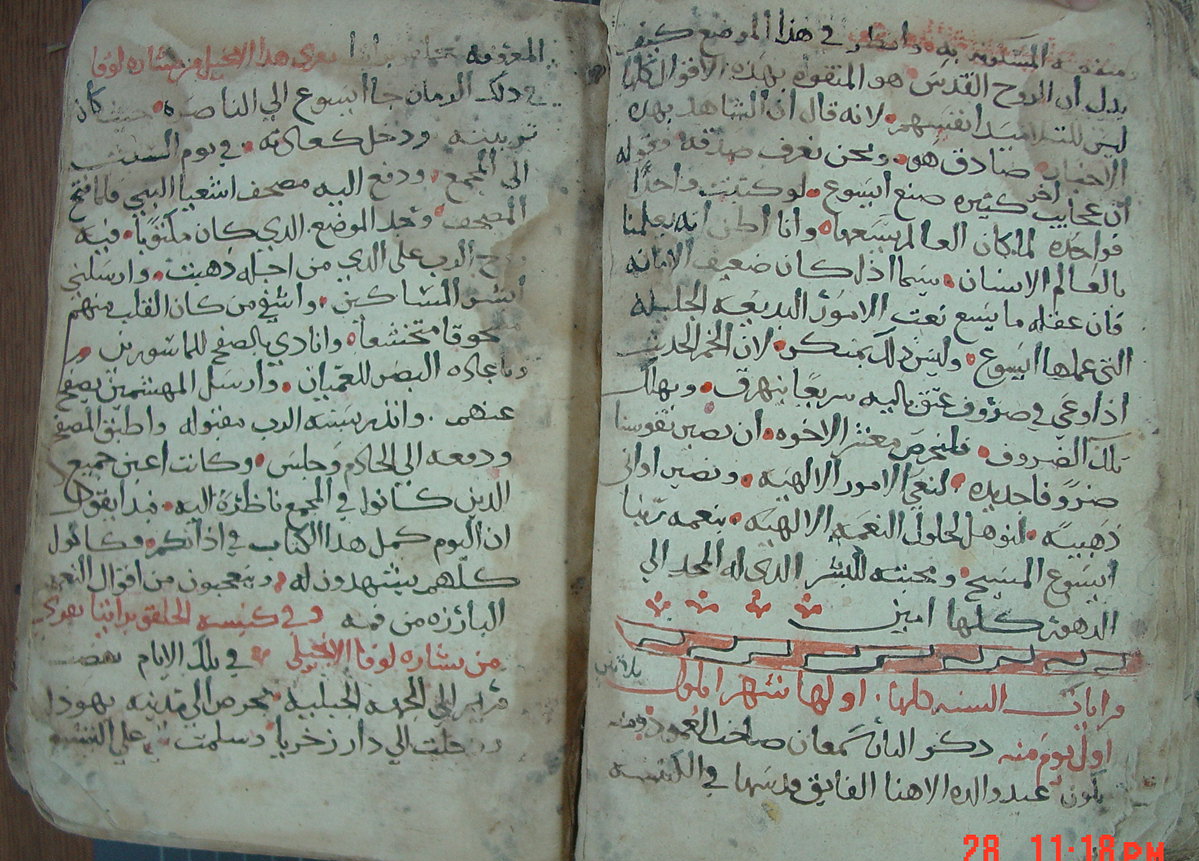 المسكونه به وانظر في هذا الموضع كيف
يدل ان الروح القدس هو المتقوه بهذه الاقوال كلها
ليس للتلاميذ انفسهم لانه قال ان الشاهد بهذه
الاخبار صادق هو ونحن نعرف صدقه وقوله
ان عجايب اخر كثيره صنع ايسوع لو كتبت واحدا
فواحده لما كان العالم يسعها وانا اظن انه يعلمنا
بالعالم الانسان سيما اذا كان ضعيف الامانه
فان عقله ما يسع نعت الامور البديعه الجليله
التي عملها ايسوع وليس ذلك بمنكر لان الخمر الحديث
اذا وعي في ضروف عتق باليه سريعا يهرق ويهلك
تلك الضروف فلنحرص معشر الاخوه ان نصير نفوسنا
ضروفا جديده لنعي الامور الالاهيه ونصير اواني
ذهبيه لنوهل لحلول النعمه الالاهيه بنعمه ربنا
ايسوع المسيح ومحبته للبشر الذي له المجد الي
الدهور كلها امين
قرايات السنه كلها اولها شهر ايلول
اول يوم منه ذكر البار سمعان صاحب العمود ومنه
يكون عيد والده الاهنا الفايق قدسها في الكنيسه
المعروفه يقرى هذا الانجيل من بشاره لوقا
في ذلك الزمان جا ايسوع الي الناصره حيث كان
تربيته ودخل كعادته في يوم السبت
الي المجمع ودفع اليه مصحف اشعيا النبي فلما فتح
المصحف وجد الموضع الذي كان مكتوبا فيه
روح الرب علي الذي من اجله دهنت وارسلني
ابشر المساكين واشفي من كان القلب منهم
محوقا متخشعا وانادي بالصفح للماسورين
وباعاده البصر للعميان وارسل المهشمين بصفح
عنهم وانذر بسنه الرب مقبوله واطبق المصحف
ودفعه الي الخادم وجلس وكانت اعين جميع
الذين كانوا في المجمع ناظرة اليه فبدا يقول
ان اليوم كمل هذا الكتاب في اذانكم وكانوا
كلهم يشهدون له ويتعجبون من اقوال النعمه
البارزه من فمه وفي كنيسه يقرى
من بشاره لوقا الانجيلي في تلك الايام نهضت
مريم الي الجهه الجبليه بحرص الي مدينه يهودا
ودخلت الي دار زخريا وسلمت علي اليشبع
28 11:18 PM